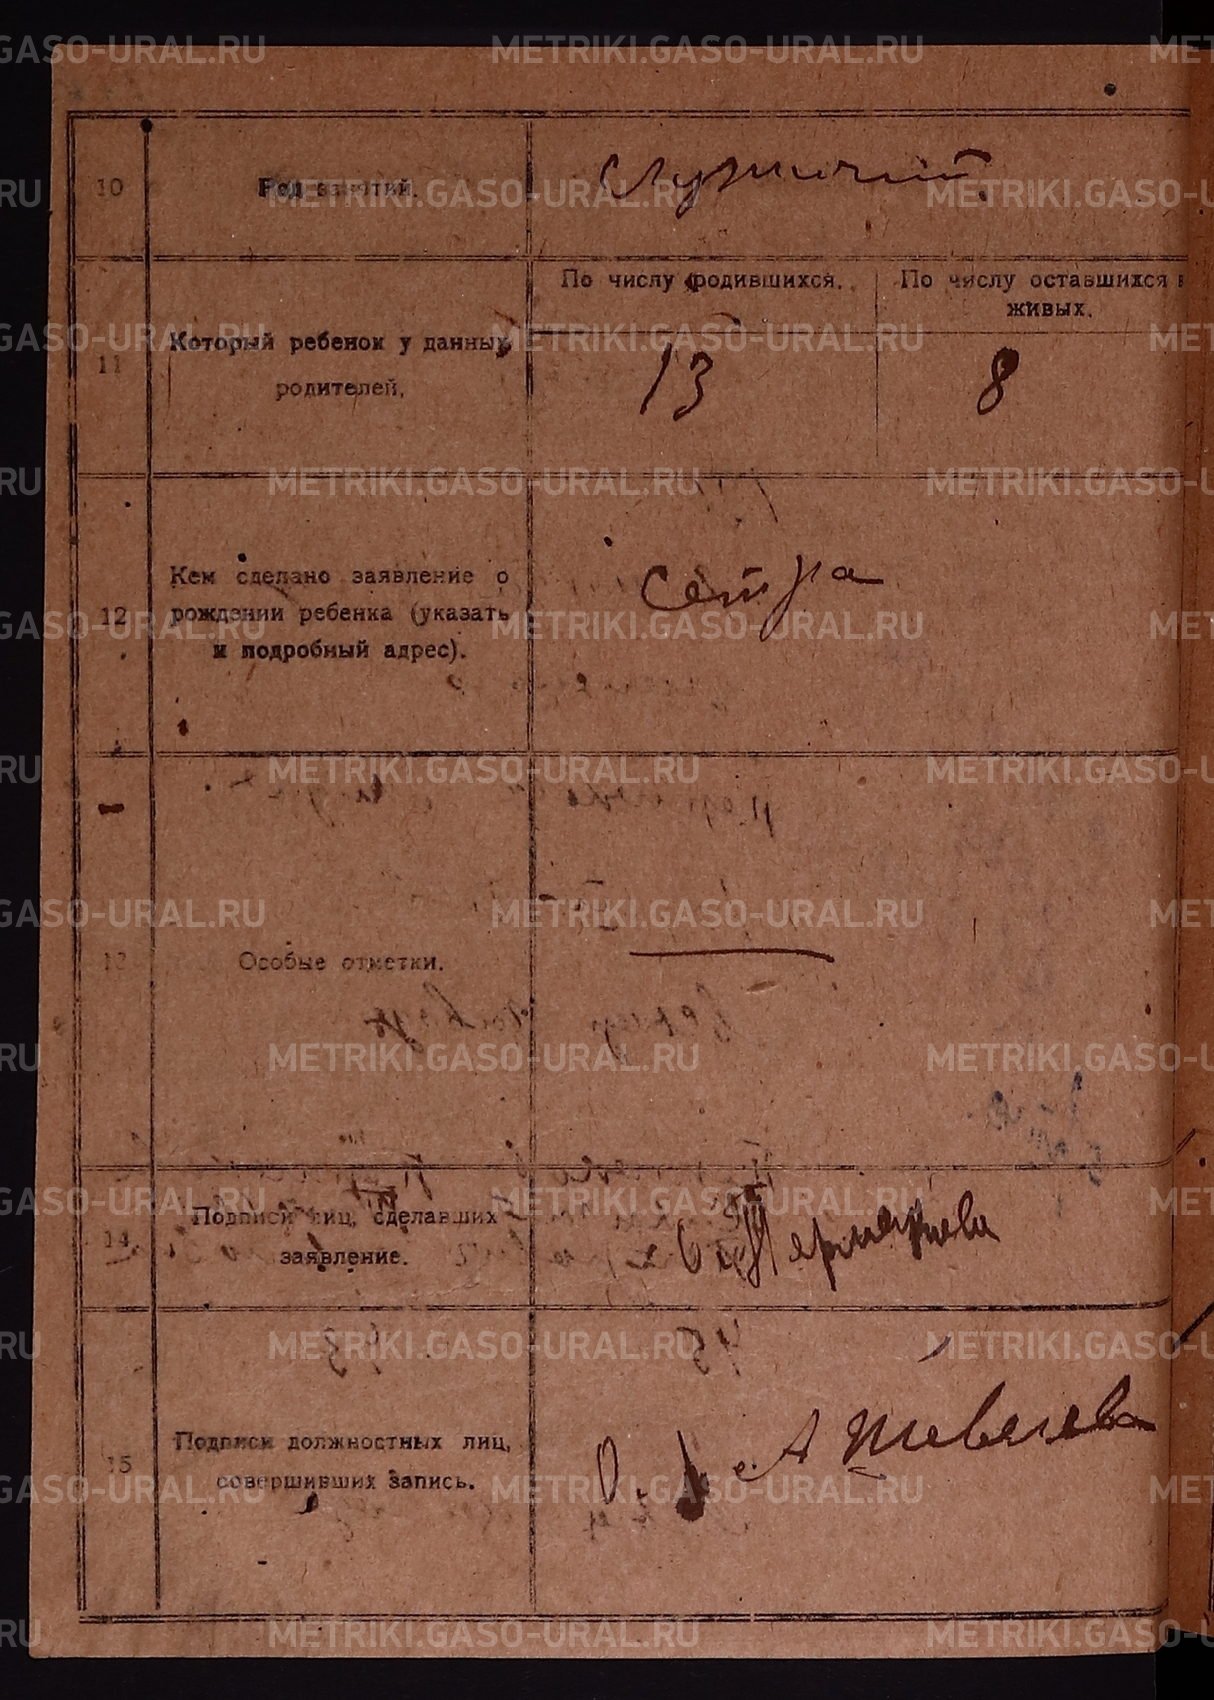 METRIKI.GASO-URAL.RU
10
Род занятий.
Служащий.
11
Который ребенок у данных
родителей.
По числу родившихся.
По числу оставшихся в
живых.
13
8
12
Кем сделано заявление о
рождении ребенка (указать
и подробный адрес).
Сетра
13
Особые отметки.
14
Подписи лиц, сделавших
заявление.
15
Подписи должностных лиц,
совершивших запись.